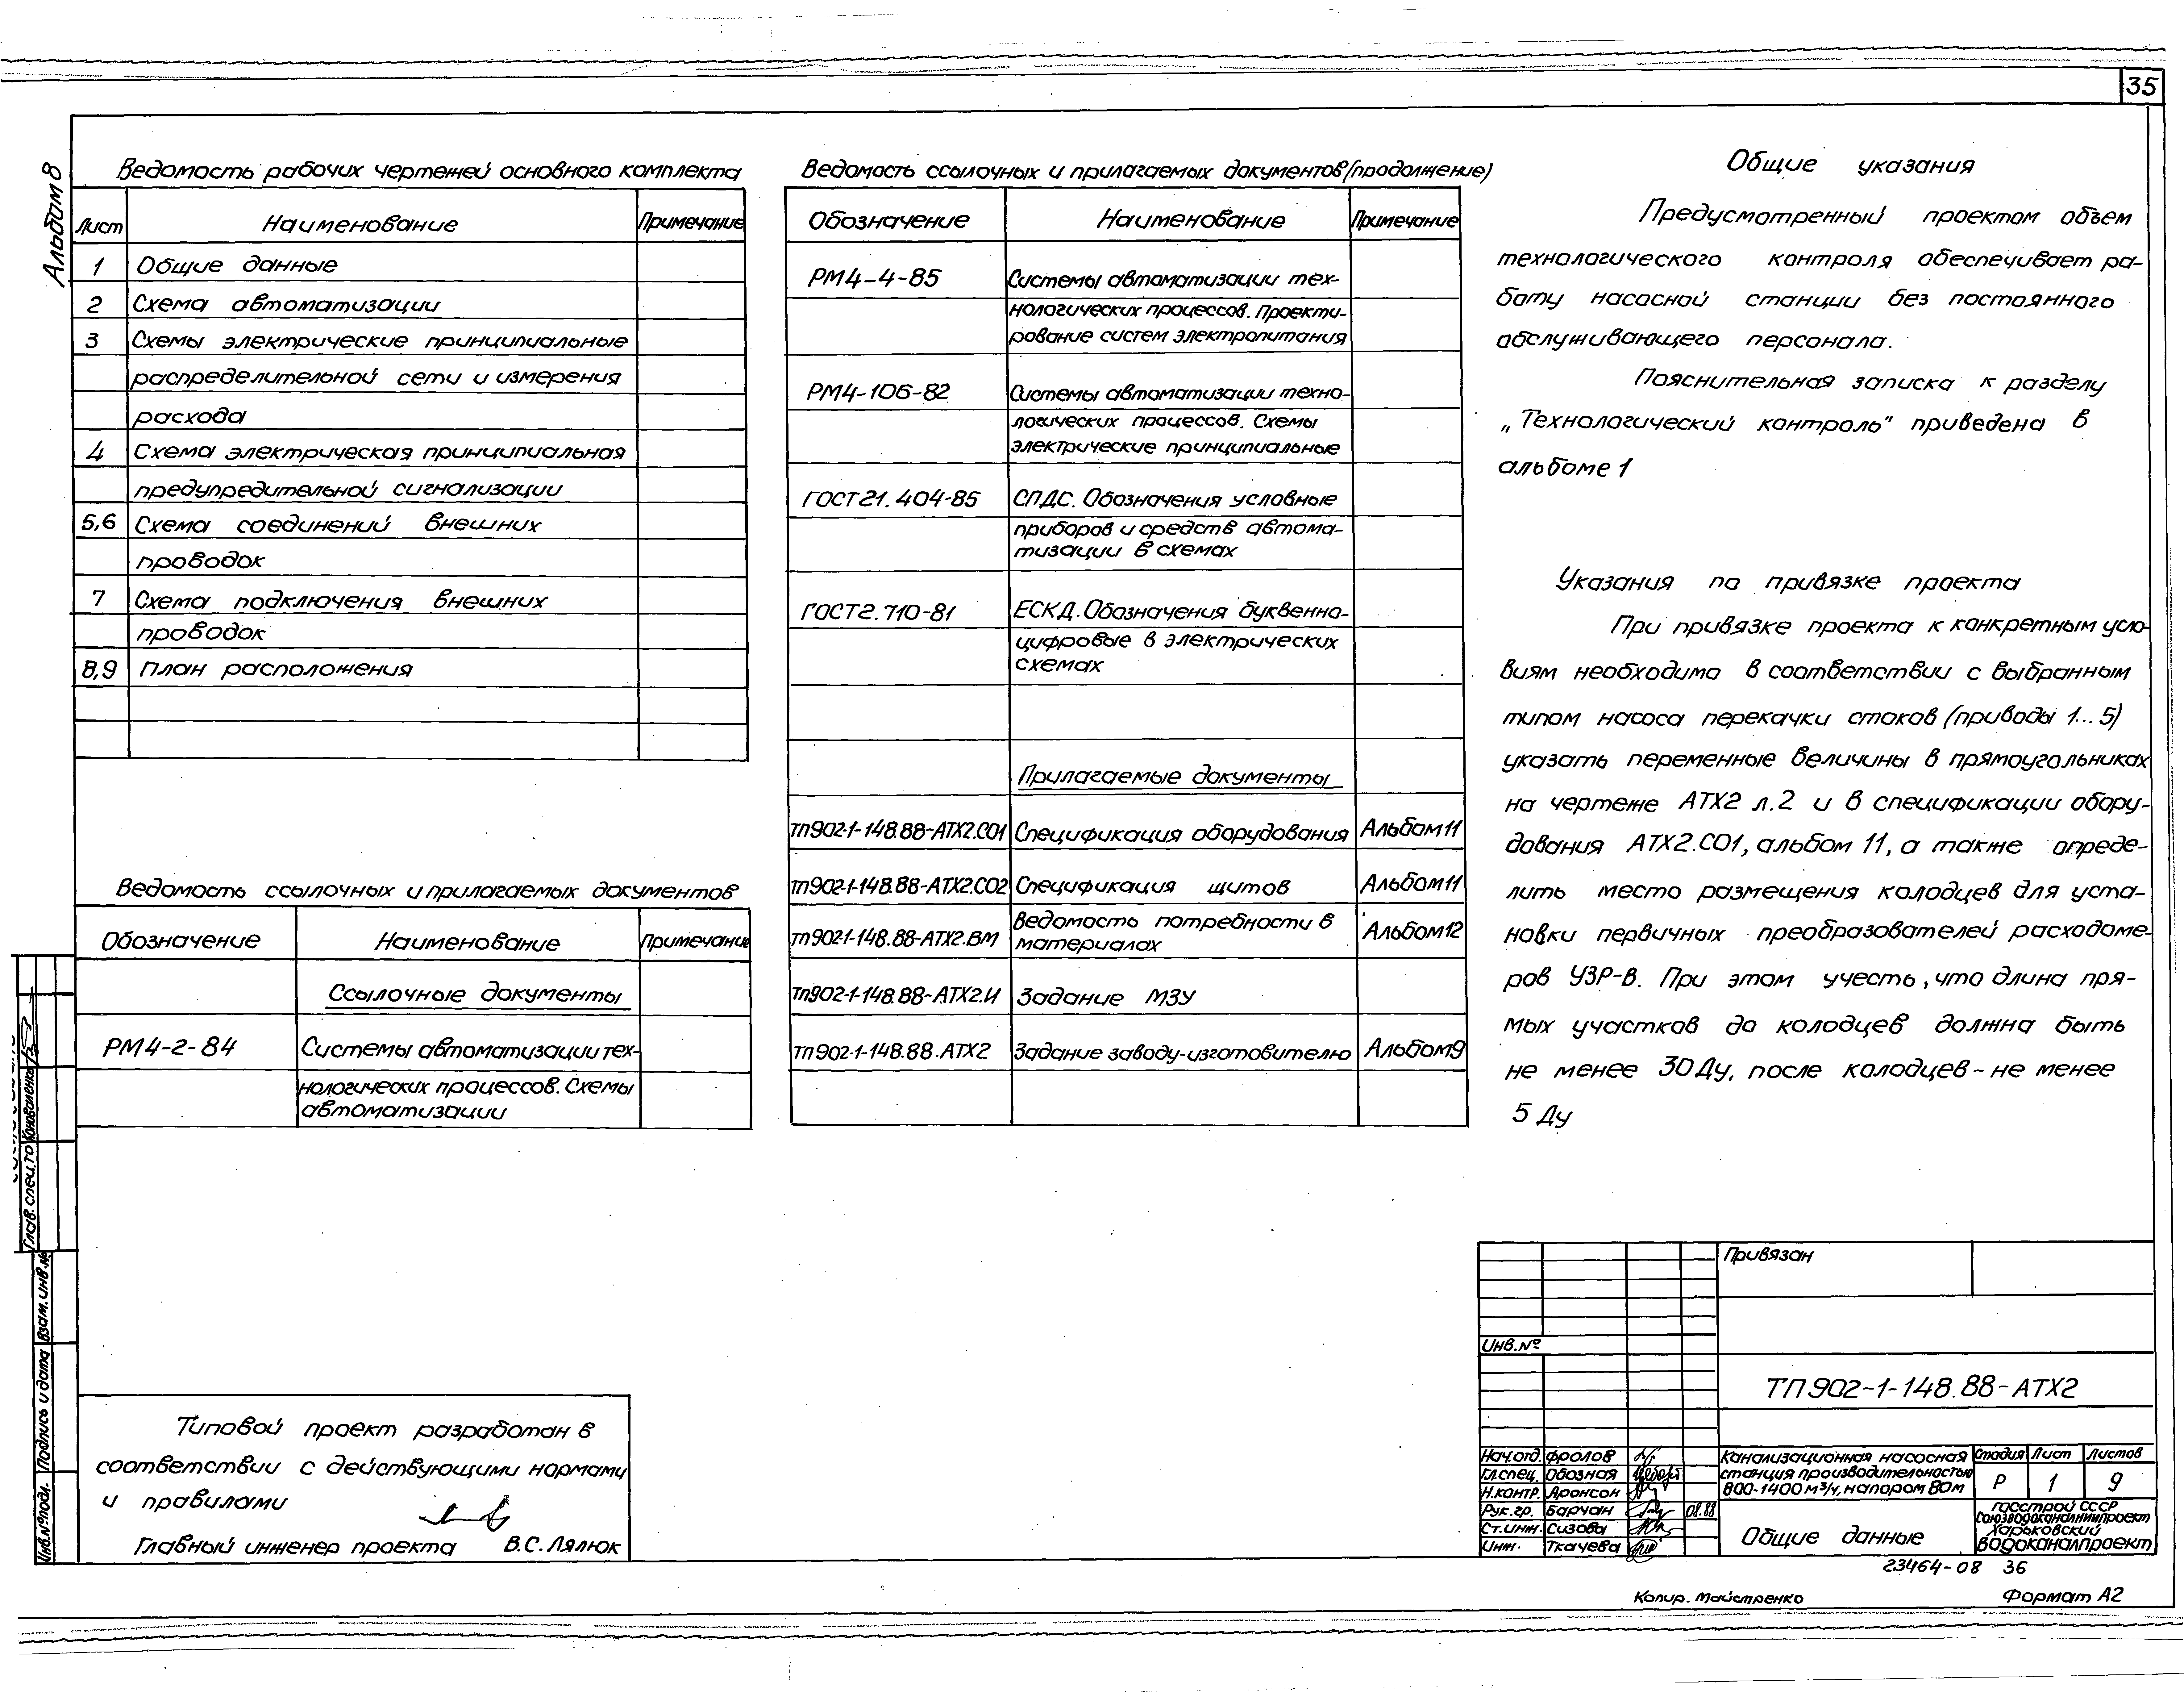 35
Альбом 8
Ведомость рабочих чертежей основного комплекта
Лист Наименование Примечание
1 Общие данные
2 Схема автоматизации
3 Схемы электрические принципиальные
распределительной сети и измерения
расхода
4 Схема электрическая принципиальная
предупредительной сигнализации
5,6 Схема соединений внешних
проводок
7 Схема подключения внешних
проводок
8,9 План расположения
Ведомость ссылочных и прилагаемых документов
Обозначение Наименование Примечание
Ссылочные документы
РМ4-2-84 Системы автоматизации тех-
нологических процессов. Схемы
автоматизации
Ведомость ссылочных и прилагаемых документов (продолжение)
Обозначение Наименование Примечание
РМ4-4-85 Системы автоматизации тех-
нологических процессов. Проекти-
рование систем электропитания
РМ4-106-82 Системы автоматизации техно-
логических процессов. Схемы
электрические принципиальные
ГОСТ 21.404-85 СПДС. Обозначения условные
приборов и средств автома-
тизации в схемах
ГОСТ 2.710-81 ЕСКД. Обозначения буквенно-
цифровые в электрических
схемах
Прилагаемые документы
ТП902-1-148.88-АТХ2.СО1 Спецификация оборудования Альбом 11
ТП902-1-148.88-АТХ2.СО2 Спецификация щитов Альбом 11
ТП902-1-148.88-АТХ2.ВМ Ведомость потребности в
материалах Альбом 12
ТП902-1-148.88-АТХ2.И Задание МЗУ
ТП902-1-148.88.АТХ2 Задание заводу-изготовителю Альбом 9
Общие указания
Предусмотренный проектом объем
технологического контроля обеспечивает ра-
боту насосной станции без постоянного
обслуживающего персонала.
Пояснительная записка к разделу
„Технологический контроль" приведена в
альбоме 1
Указания по привязке проекта
При привязке проекта к конкретным усло-
виям необходимо в соответствии с выбранным
типом насоса перекачки стоков (приводы 1...5)
указать переменные величины в прямоугольниках
на чертеже АТХ2 л.2 и в спецификации обору-
дования АТХ2.СО1, альбом 11, а также опреде-
лить место размещения колодцев для уста-
новки первичных преобразователей расходоме-
ров УЗР-В. При этом учесть, что длина пря-
мых участков до колодцев должна быть
не менее 30Ду, после колодцев - не менее
5 Ду
Глав. спец. ТО Коноваленко
Инв.№ подл. Подпись и дата Взам. инв.№
Типовой проект разработан в
соответствии с действующими нормами
и правилами
Главный инженер проекта В.С. Лялюк
Привязан
Инв.№
ТП 902-1-148.88-АТХ2
Нач.отд. Фролов
Гл.спец. Обозная
Н.контр. Аронсон
Рук.гр. Барчан 08.88
Ст.инж. Сизовы
Инж. Ткачева
Канализационная насосная
станция производительностью
800-1400 м³/ч, напором 80м
Стадия Лист Листов
Р 1 9
Общие данные
Госстрой СССР
Союзводоканалниипроект
Харьковский
водоканалпроект
23464-08 36
Копир. Майстренко Формат А2